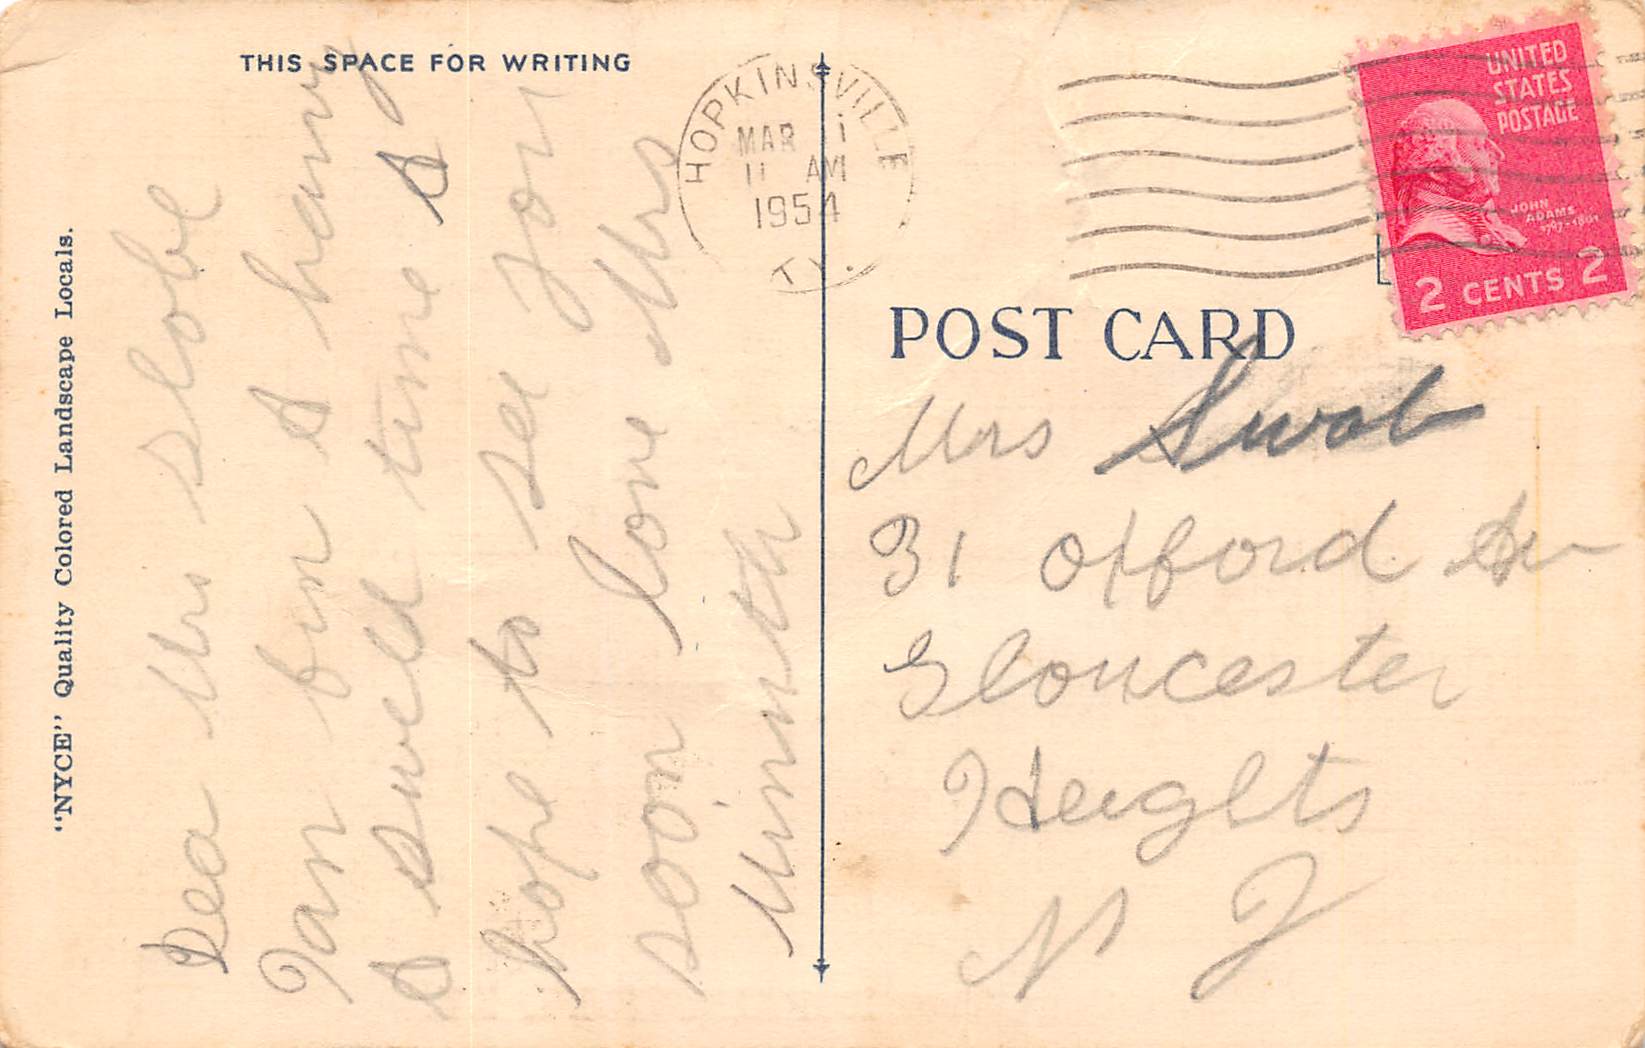 THIS SPACE FOR WRITING
"NYCE" Quality Colored Landscape Locals.
Dea Mrs Slobe
fun I haing
A swell time I
hope to see you
soon love Mrs
Minnth
HOPKINSVILLE
MAR 1
11 AM
1954
KY.
UNITED
STATES
POSTAGE
JOHN
ADAMS
1797-1801
2 CENTS 2
POST CARD
Mrs Swob
31 Oxford Av
Gloucester
Heights
N J